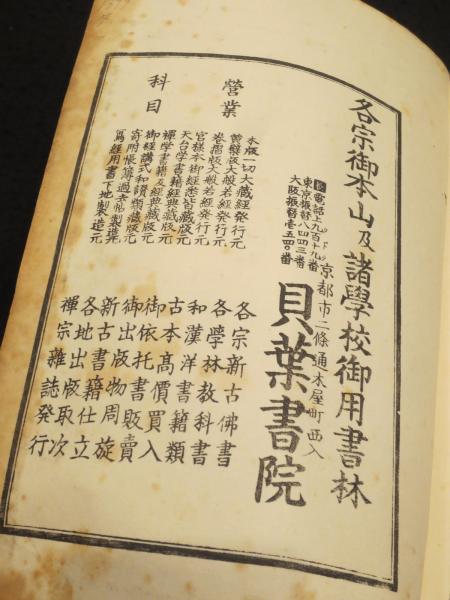 各宗御本山及諸學校御用書林
京都市二條通木屋町西入
電話上九百十九番
東京振替八四四三番
大阪振替壱五四〇番
貝葉書院
營業
科目
木版一切大藏経発行元
黄檗版大般若経発行元
巻摺版大般若経発行元
宮様本御経塁皆藏版元
天台学書籍経典藏版元
禪学書籍及経典藏版元
御経講式和讃類藏版元
寄附帳簿過去帖製造元
寫経用書下地製造元
各宗新古佛書
各學林教科書
和漢洋書籍類
古本髙價買入
御依托書販賣
御出版物周旋
新古書籍仕立
各地出版取次
禪宗雜誌発行